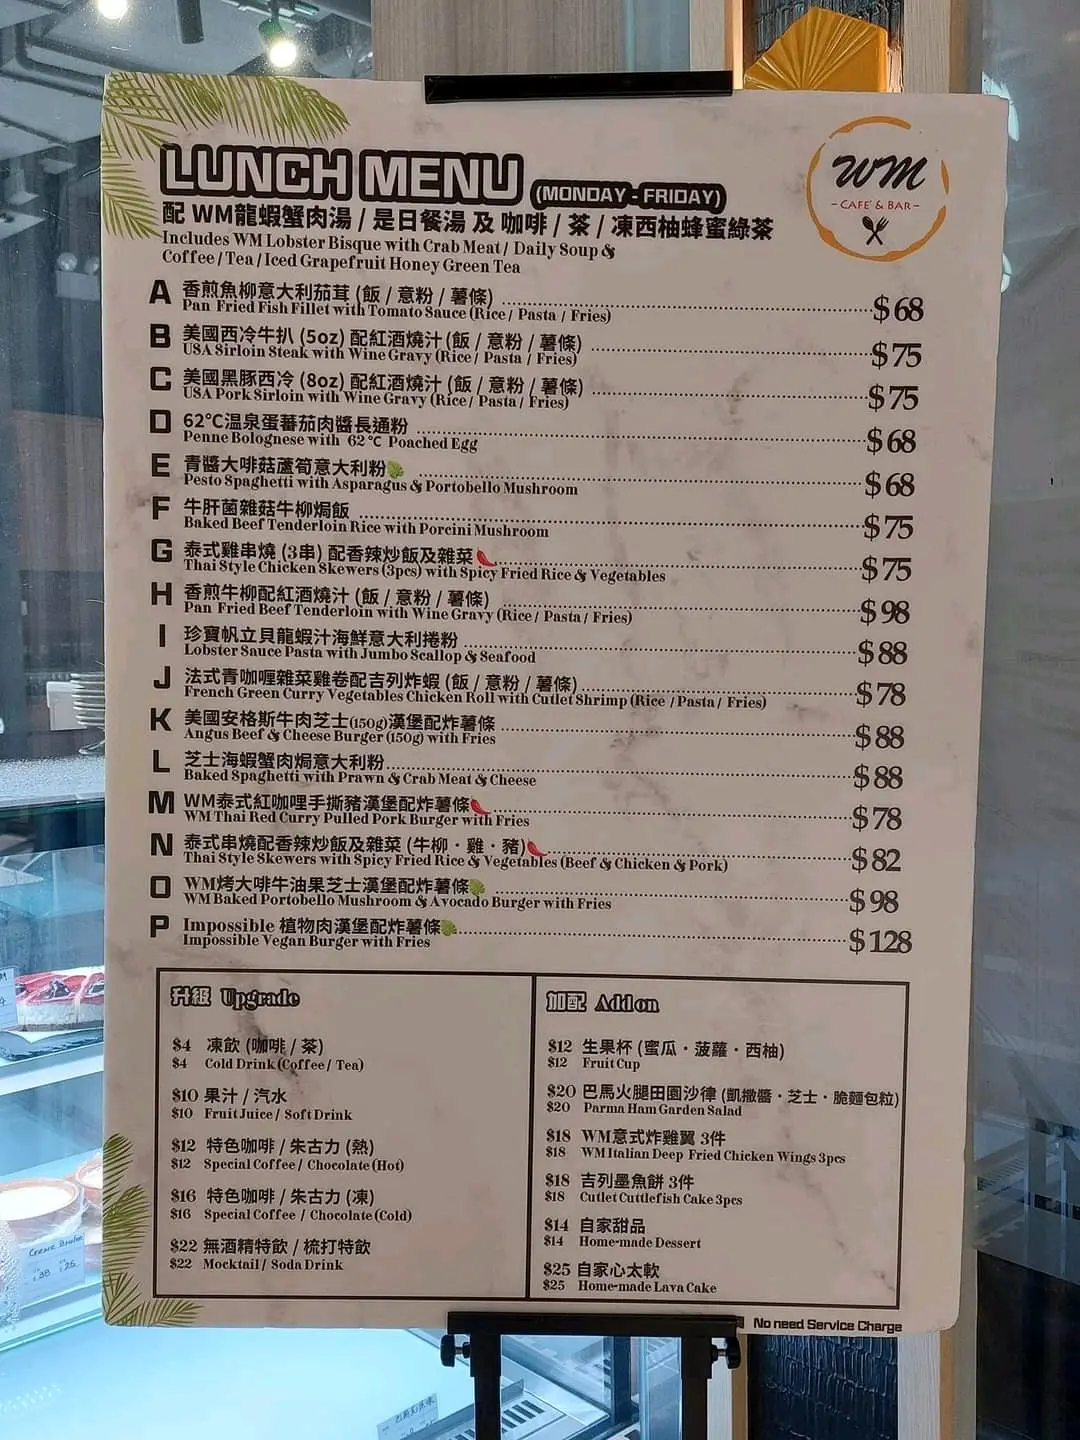 LUNCH MENU (MONDAY - FRIDAY)
WM
- CAFE' & BAR -
配 WM龍蝦蟹肉湯 / 是日餐湯 及 咖啡 / 茶 / 凍西柚蜂蜜綠茶
Includes WM Lobster Bisque with Crab Meat / Daily Soup &
Coffee / Tea / Iced Grapefruit Honey Green Tea
A 香煎魚柳意大利茄茸 (飯 / 意粉 / 薯條) $68
Pan Fried Fish Fillet with Tomato Sauce (Rice / Pasta / Fries)
B 美國西冷牛扒 (5oz) 配紅酒燒汁 (飯 / 意粉 / 薯條) $75
USA Sirloin Steak with Wine Gravy (Rice / Pasta / Fries)
C 美國黑豚西冷 (8oz) 配紅酒燒汁 (飯 / 意粉 / 薯條) $75
USA Pork Sirloin with Wine Gravy (Rice / Pasta / Fries)
D 62℃温泉蛋蕃茄肉醬長通粉 $68
Penne Bolognese with 62℃ Poached Egg
E 青醬大啡菇蘆筍意大利粉 $68
Pesto Spaghetti with Asparagus & Portobello Mushroom
F 牛肝菌雜菇牛柳焗飯 $75
Baked Beef Tenderloin Rice with Porcini Mushroom
G 泰式雞串燒 (3串) 配香辣炒飯及雜菜 $75
Thai Style Chicken Skewers (3pcs) with Spicy Fried Rice & Vegetables
H 香煎牛柳配紅酒燒汁 (飯 / 意粉 / 薯條) $98
Pan Fried Beef Tenderloin with Wine Gravy (Rice / Pasta / Fries)
I 珍寶帆立貝龍蝦汁海鮮意大利捲粉 $88
Lobster Sauce Pasta with Jumbo Scallop & Seafood
J 法式青咖喱雜菜雞卷配吉列炸蝦 (飯 / 意粉 / 薯條) $78
French Green Curry Vegetables Chicken Roll with Cutlet Shrimp (Rice / Pasta / Fries)
K 美國安格斯牛肉芝士(150g)漢堡配炸薯條 $88
Angus Beef & Cheese Burger (150g) with Fries
L 芝士海蝦蟹肉焗意大利粉 $88
Baked Spaghetti with Prawn & Crab Meat & Cheese
M WM泰式紅咖哩手撕豬漢堡配炸薯條 $78
WM Thai Red Curry Pulled Pork Burger with Fries
N 泰式串燒配香辣炒飯及雜菜 (牛柳・雞・豬) $82
Thai Style Skewers with Spicy Fried Rice & Vegetables (Beef & Chicken & Pork)
O WM烤大啡牛油果芝士漢堡配炸薯條 $98
WM Baked Portobello Mushroom & Avocado Burger with Fries
P Impossible 植物肉漢堡配炸薯條 $128
Impossible Vegan Burger with Fries
升級 Upgrade
$4 凍飲 (咖啡 / 茶)
$4 Cold Drink (Coffee / Tea)
$10 果汁 / 汽水
$10 Fruit Juice / Soft Drink
$12 特色咖啡 / 朱古力 (熱)
$12 Special Coffee / Chocolate (Hot)
$16 特色咖啡 / 朱古力 (凍)
$16 Special Coffee / Chocolate (Cold)
$22 無酒精特飲 / 梳打特飲
$22 Mocktail / Soda Drink
加配 Add on
$12 生果杯 (蜜瓜・菠蘿・西柚)
$12 Fruit Cup
$20 巴馬火腿田園沙律 (凱撒醬・芝士・脆麵包粒)
$20 Parma Ham Garden Salad
$18 WM意式炸雞翼 3件
$18 WM Italian Deep Fried Chicken Wings 3pcs
$18 吉列墨魚餅 3件
$18 Cutlet Cuttlefish Cake 3pcs
$14 自家甜品
$14 Home-made Dessert
$25 自家心太軟
$25 Home-made Lava Cake
No need Service Charge